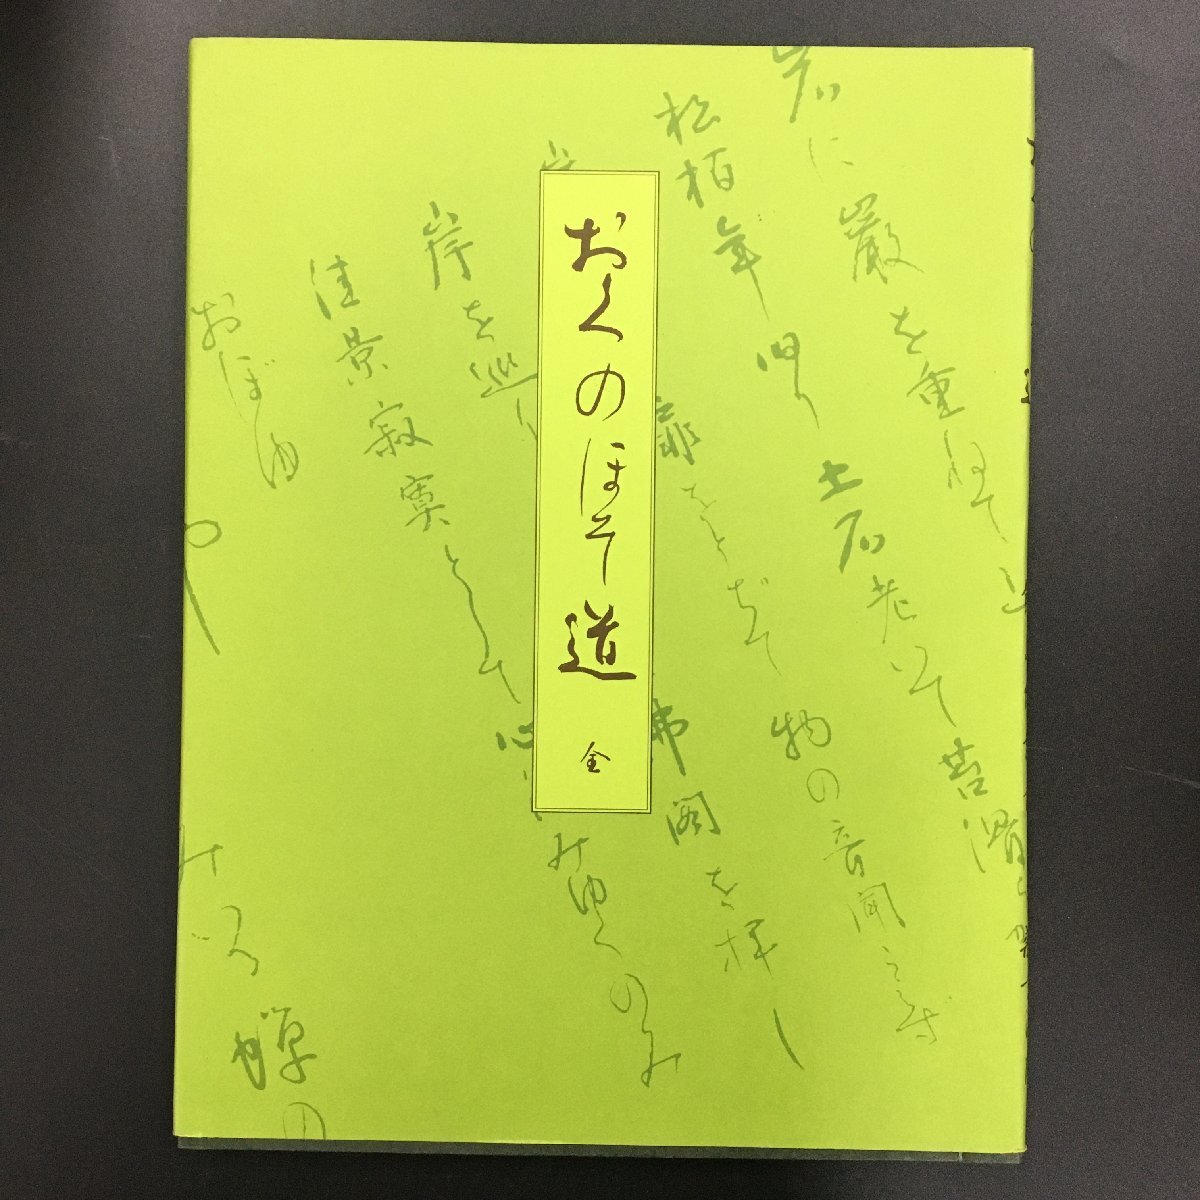 おくのほそ道
全
岩に巌を重ねて山
松柏年旧り土石老いて苔滑
扉をとぢて物の音聞こえず
岸を巡り
佛閣を拝し
佳景寂寞として心
みゆくのみ
おぼゆ
や
蝉の